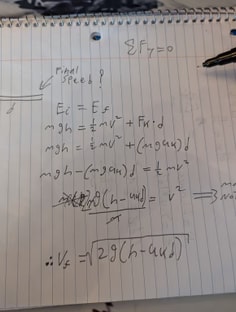 ΣFy=0
Final
speed?
d
Ei = Ef
mgh = ½mv² + Fk·d
mgh = ½mv² + (mgμk)d
mgh-(mgμk)d = ½mv²
g(h-μkd) = v²
m
∴ Vf = √2g(h-μkd)